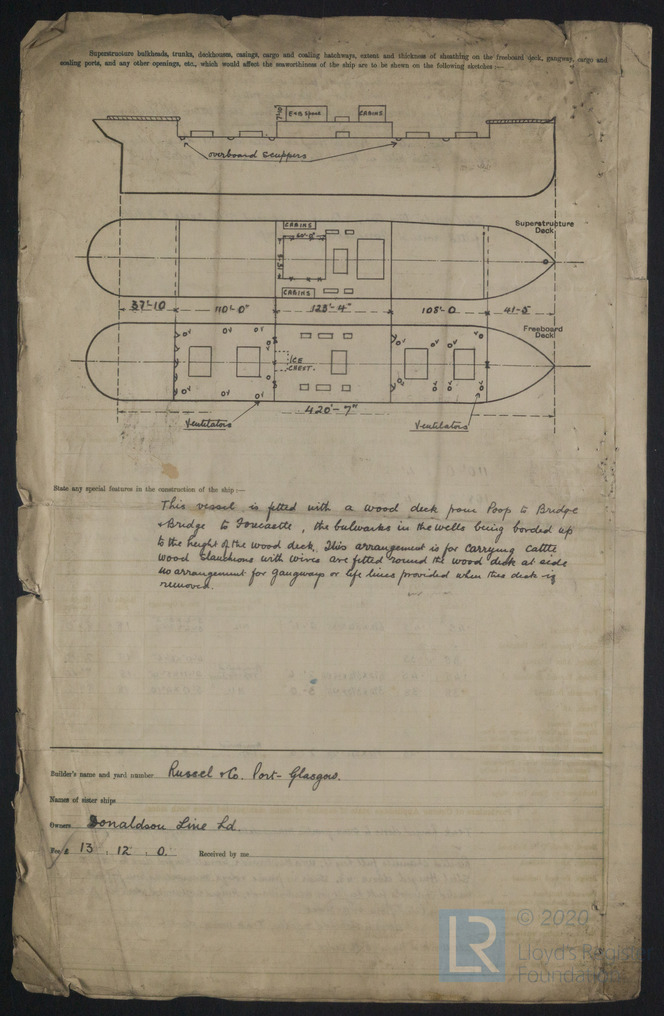 Superstructure bulkheads, trunks, deckhouses, casings, cargo and coaling hatchways, extent and thickness of sheathing on the freeboard deck, gangway, cargo and
coaling ports, and any other openings, etc., which would affect the seaworthiness of the ship are to be shown on the following sketches:—
7'-0"
Eng Space
CABINS
overboard scuppers
Superstructure
Deck
CABINS
CABINS
37'-10
110'-0"
123'-4"
108'-0
41'-5"
Freeboard
Deck
ICE
CHEST.
420'-7"
Ventilators
Ventilators
State any special features in the construction of the ship:—
This vessel is fitted with a wood deck from Poop to Bridge
& Bridge to Forecastle, the bulwarks in the wells being borded up
to the height of the wood deck. This arrangement is for carrying cattle
wood stauchions with wires are fitted round the wood deck at side
no arrangement for gangways or life lines provided when this deck is
removed.
Builder's name and yard number Russel & Co. Port-Glasgow.
Names of sister ships
Owners Donaldson Line Ld.
Fee £ 13 . 12 . 0. Received by me
LR
© 2020
Lloyd's Register
Foundation